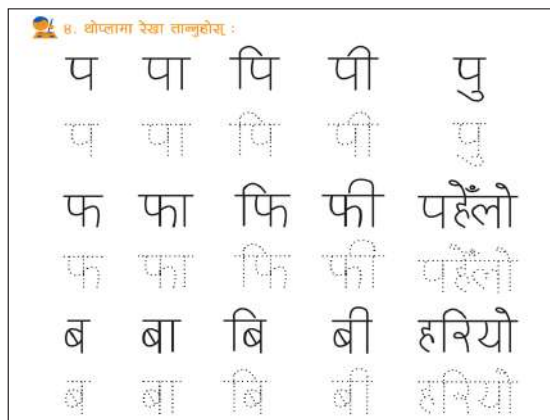 ४. थोप्लामा रेखा तान्नुहोस् :
प पा पि पी पु
प पा पि पी पु
फ फा फि फी पहेँलो
फ फा फि फी पहेँलो
ब बा बि बी हरियो
ब बा बि बी हरियो